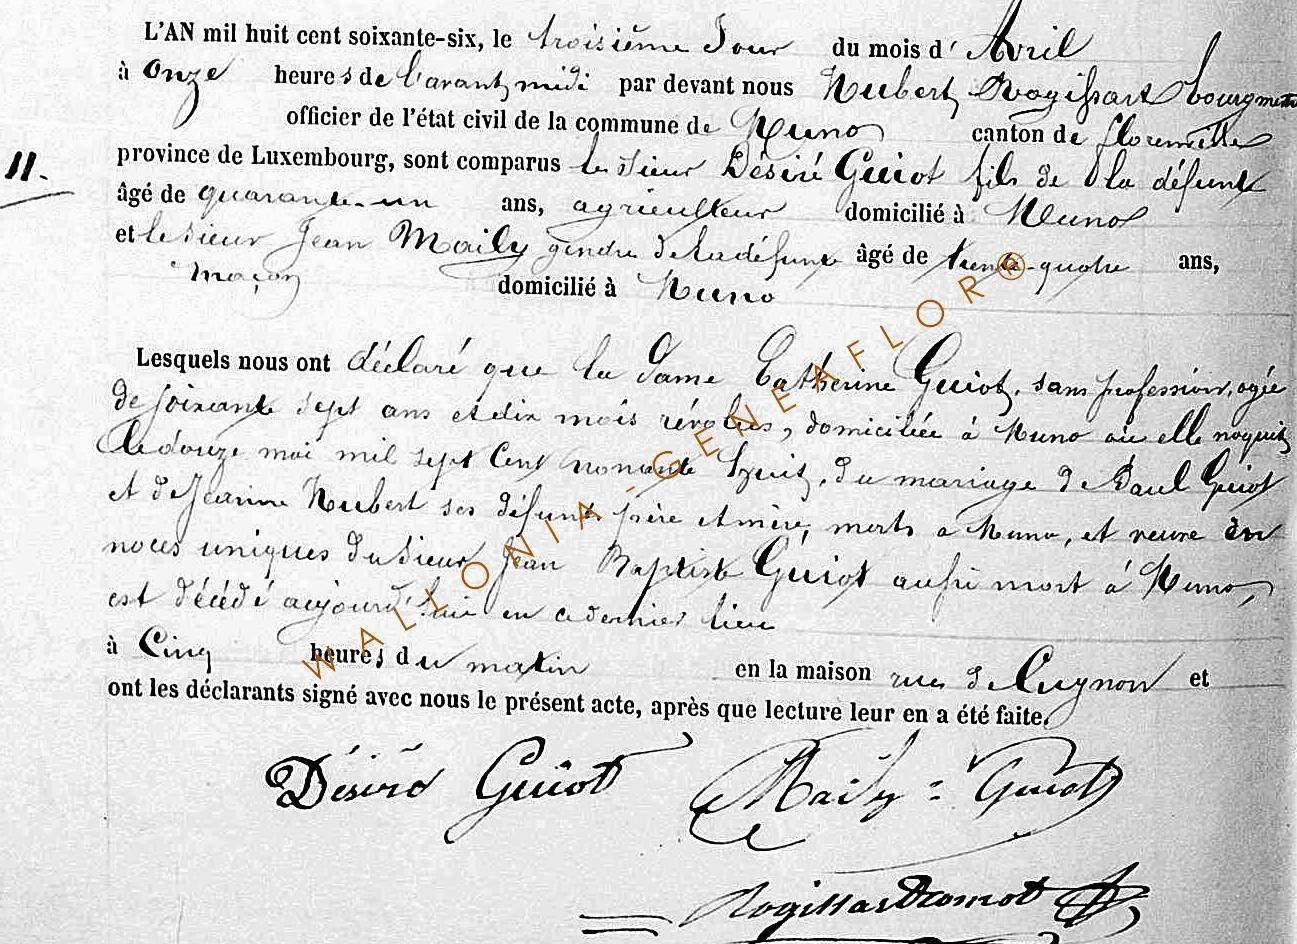 L'AN mil huit cent soixante-six, le troisième Jour du mois d'Avril
à Onze heures de l'avant midi par devant nous Hubert Rogissart bourgmetre
officier de l'état civil de la commune de Muno canton de florenville
11.
province de Luxembourg, sont comparus le Sieur Désiré Guiot fils de la défunte
âgé de quarante-un ans, agriculteur domicilié à Muno
et le Sieur Jean Maily gendre de la défunte âgé de trente-quatre ans,
maçon domicilié à Muno
Lesquels nous ont déclaré que la Dame Catherine Guiot, sans profession, agée
de soixante sept ans et dix mois révolus, domiciliée à Muno où elle naquit
le douze mai mil sept Cent nonante huit, du mariage de Paul Guiot
et de Jeanne Hubert ses défunts père et mère, morts à Muno, et veuve en
noces uniques du Sieur Jean Baptiste Guiot aussi mort à Muno,
est décédé aujourd'hui en ce dernier lieu
à Cinq heures du matin en la maison rue de Cugnon et
ont les déclarants signé avec nous le présent acte, après que lecture leur en a été faite.
Désiré Guiot Maily-Guiot
Rogissart
WALLONIA-GENEAFLOR®